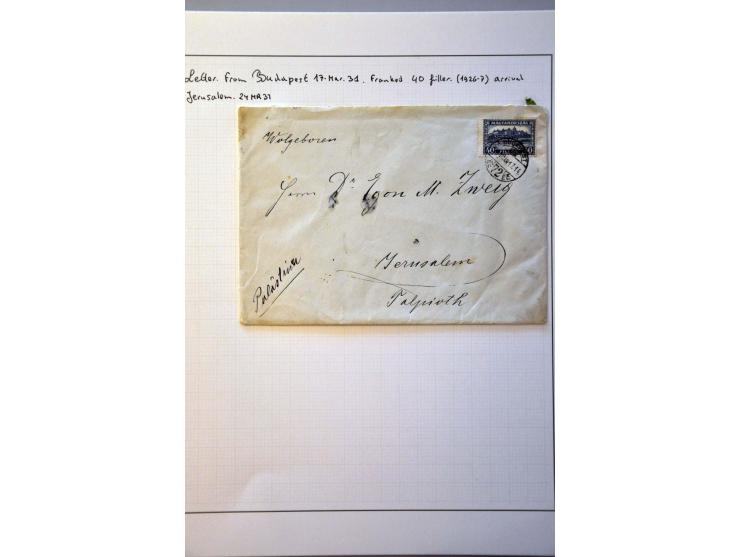 Letter. From Budapest 17. Mar. 31. Franked 40 filler. (1926-7) arrival
Jerusalem. 24 MR 31
MAGYARORSZÁG
40
72
Wolgeboren
Herrn Dr Egon M. Zweig
Jerusalem
Palästina
Talpioth